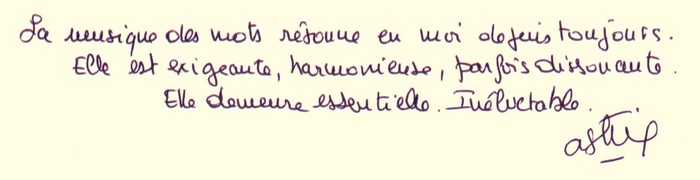 La musique des mots résonne en moi depuis toujours.
Elle est exigeante, harmonieuse, parfois dissonante.
Elle demeure essentielle. Inéluctable.